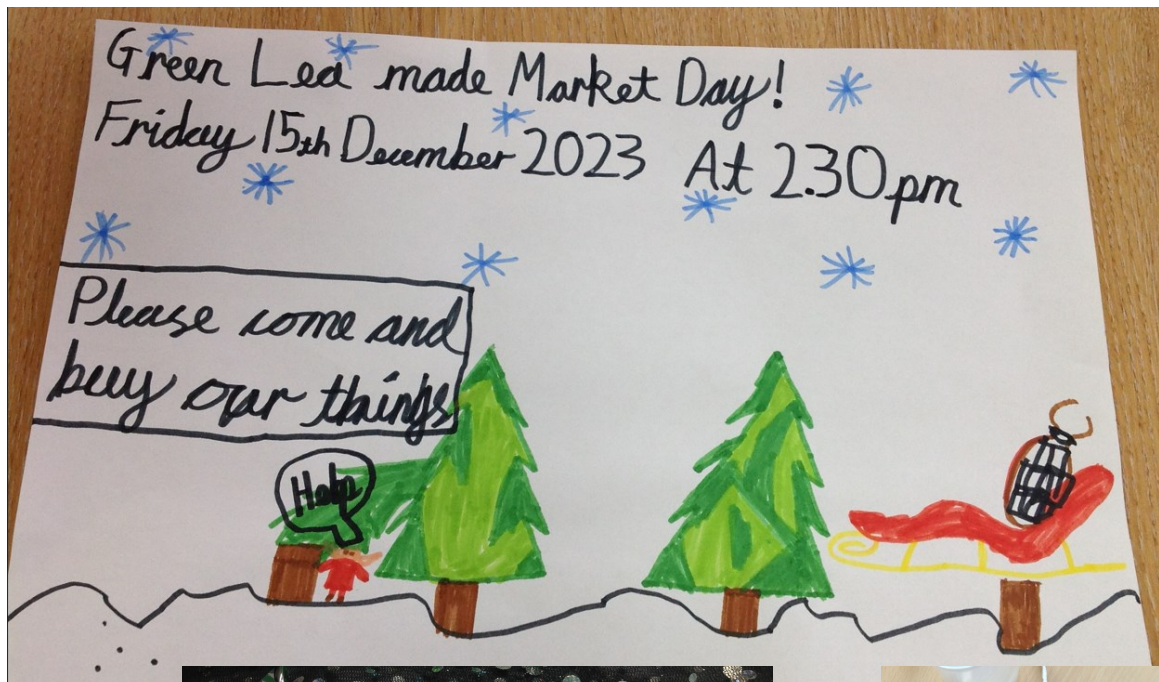 Green Lea made Market Day!
Friday 15th December 2023 At 2.30pm
Please come and
buy our things
Help